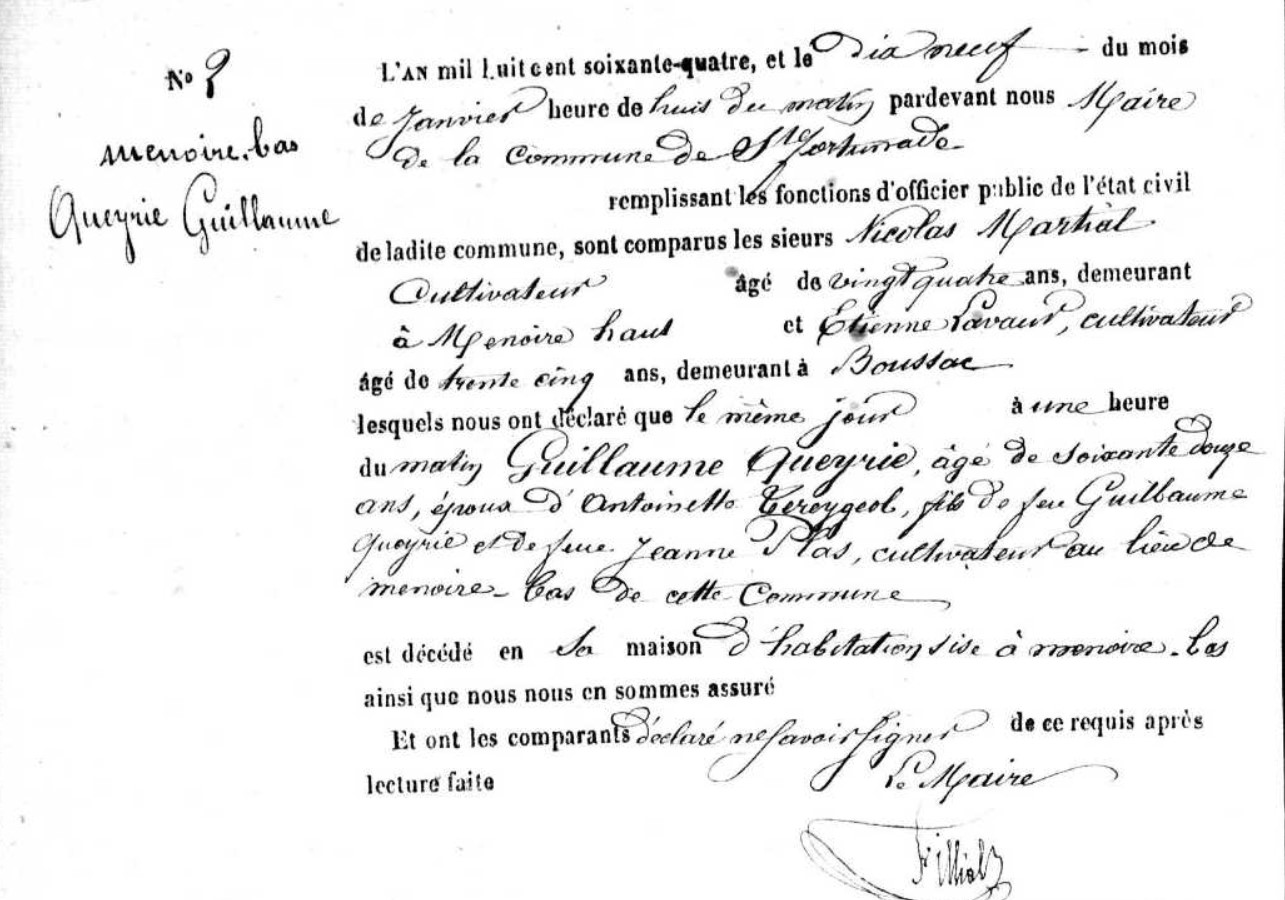 N°
menoire. bas
Queyrie Guillaume
L'AN mil huit cent soixante-quatre, et le dix neuf du mois
de Janvier heure de huit du matin pardevant nous Maire
de la Commune de Ste Fortunade
remplissant les fonctions d'officier public de l'état civil
de ladite commune, sont comparus les sieurs Nicolas Martial
Cultivateur âgé de vingt quatre ans, demeurant
à Menoire haut et Etienne Lavaur, cultivateur
âgé de trente cinq ans, demeurant à Boussac
lesquels nous ont déclaré que le même jour à une heure
du matin Guillaume Queyrie, âgé de soixante douze
ans, époux d'Antoinette Tereygeol, fils de feu Guillaume
Queyrie et de feue Jeanne Plas, cultivateur au lieu de
menoire-bas de cette Commune
est décédé en sa maison d'habitation sise à menoire-bas
ainsi que nous nous en sommes assuré
Et ont les comparants déclaré ne savoir signer de ce requis après
lecture faite Le Maire